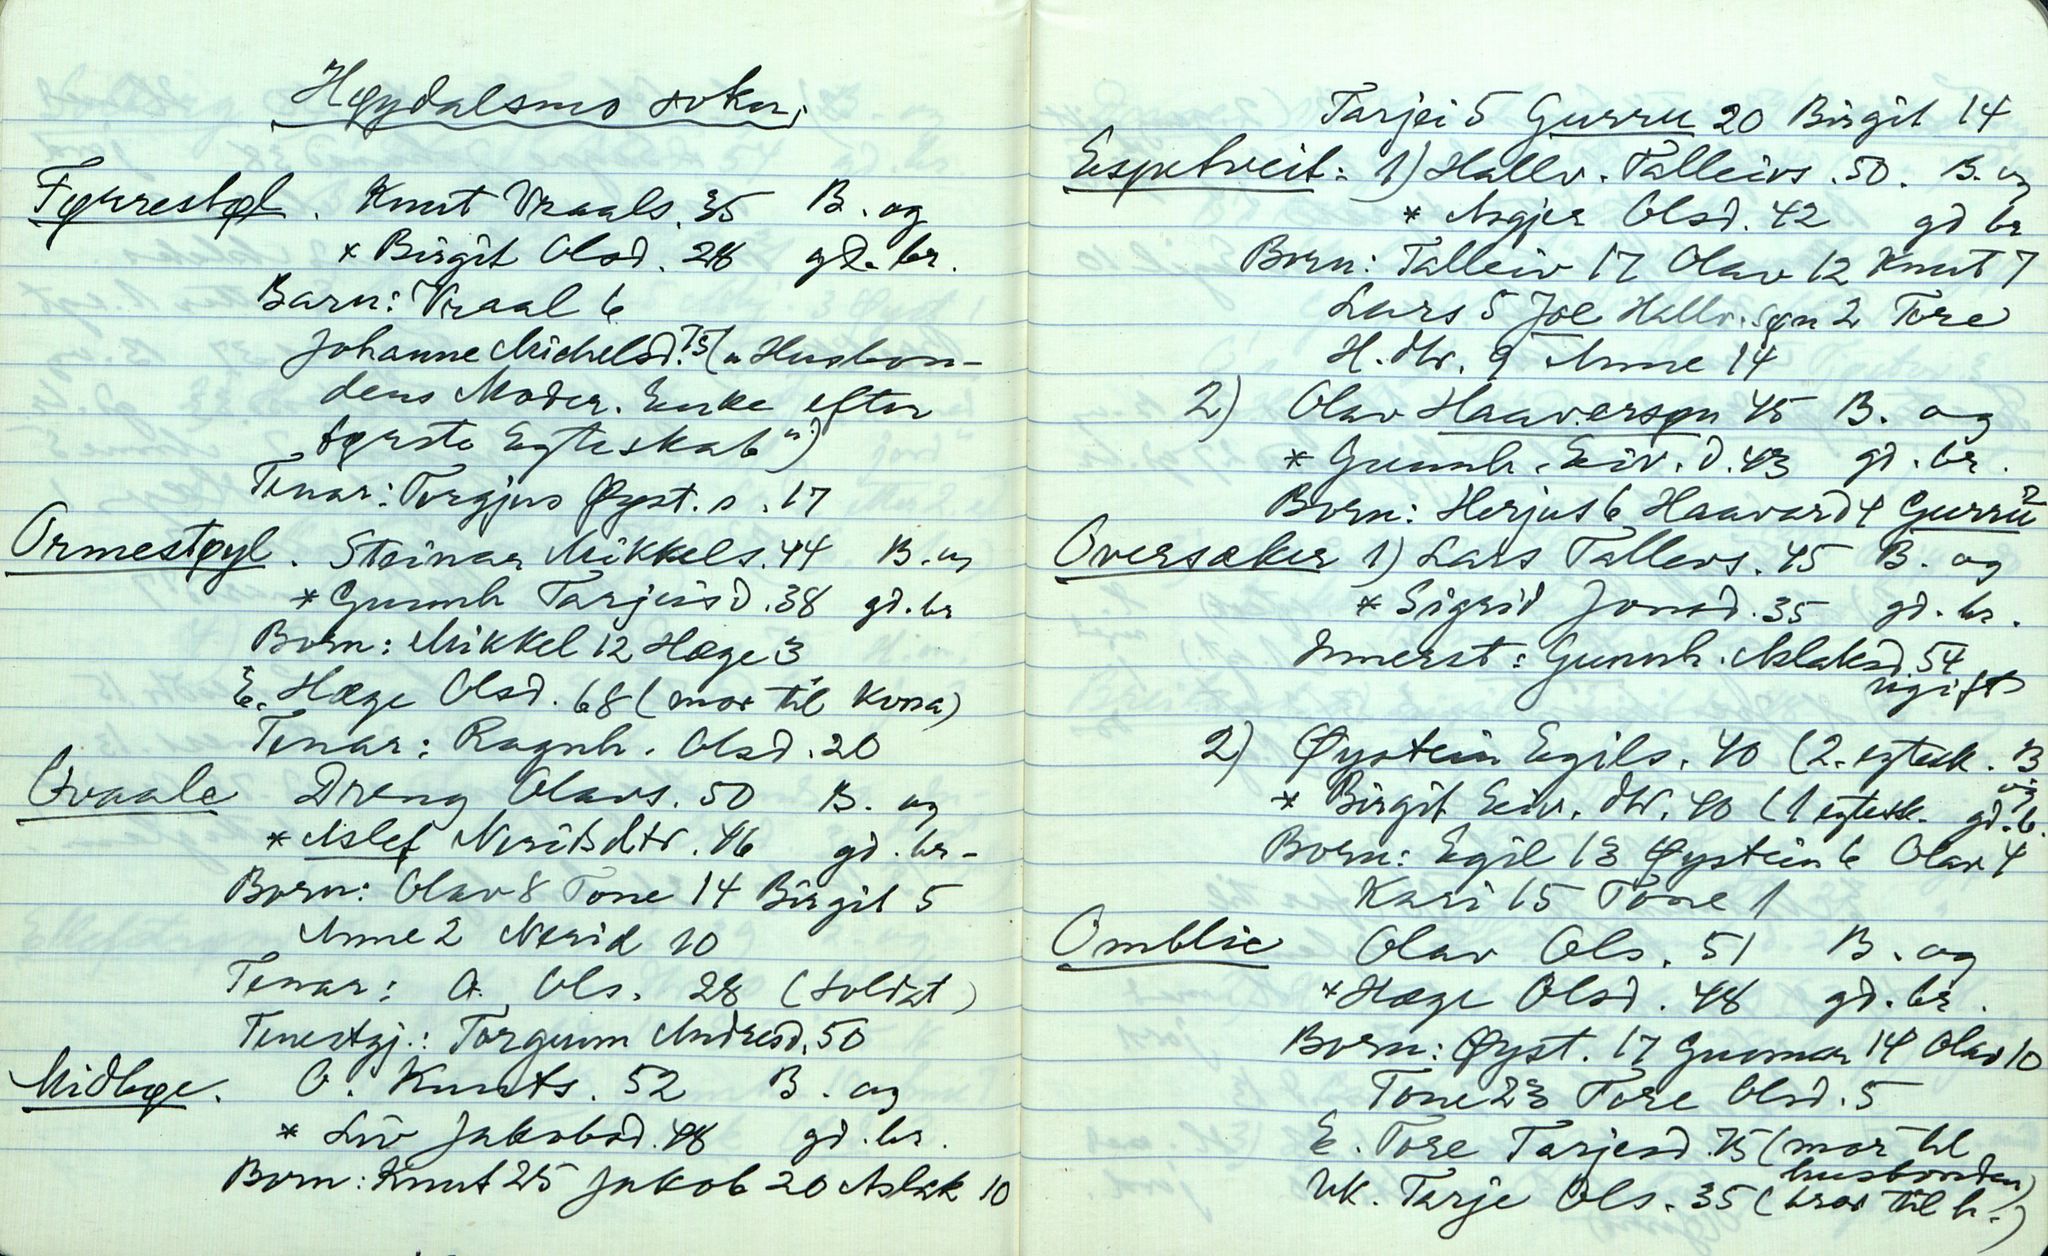 Høydalsmo sokn.
Fyrrestøl. Knut Vraals. 35 B. og
* Birgit Olsd. 28 gd. br.
Barn: Vraal 6
Johanne Michelsd. 75 („Husbon-
dens Moder. Enke efter
første Egteskab")
Tenar: Torgjus Øyst. s. 17
Ormestøyl. Steinar Mikkels. 44 B. og
* Gunnh Tarjeisd. 38 gd. br
Born: Mikkel 12 Hæge 3
E. Hæge Olsd. 68 (mor til kona)
Tenar: Ragnh. Olsd. 20
Ovaale Dreng Olavs. 50 B. og
* Aslef Neridsdtr. 46 gd. br-
Born: Olav 8 Tone 14 Birgit 5
Anne 2 Nerid 10
Tenar: O. Ols. 28 (soldat)
Tenestgj.: Torgunn Andresd. 50
Midbøe. O. Knuts. 52 B. og
* Liv Jakobsd. 48 gd. br.
Born: Knut 25 Jakob 20 Aslak 10
Tarjei 5 Gurru 20 Birgit 14
Espetveit: 1) Hallv. Talleivs. 50. B. og
* Asgjer Olsd. 42 gd br
Born: Talleiv 17 Olav 12 Knut 7
Lars 5 Joe Hallv. søn 2 Tore
H. dtr. 9 Anne 14
2) Olav Haaversøn 45 B. og
* Gunnh. Eiv. d. 43 gd. br.
Born: Herjus 6 Haavard 4 Gurru 2
Oversaker 1) Lars Tallevs. 45 B. og
* Sigrid Jonsd. 35 gd. br.
Innerst: Gunnh. Aslaksd 54
ugift
2) Øystein Egils. 40 (2. egtesk. B
og
* Birgit Eiv. dtr. 40 (1 egtesk. gd. b.
Born: Egil 13 Øystein 6 Olav 4
Kari 15 Tone 1
Omblie Olav Ols. 51 B. og
* Hæge Olsd. 48 gd. br.
Born: Øyst. 17 Gunnar 14 Olav 10
Tone 23 Tore Olsd. 5
E. Tore Tarjesd. 75 (mor til
husbonden)
Vk. Tarje Ols. 35 (bror til h.)